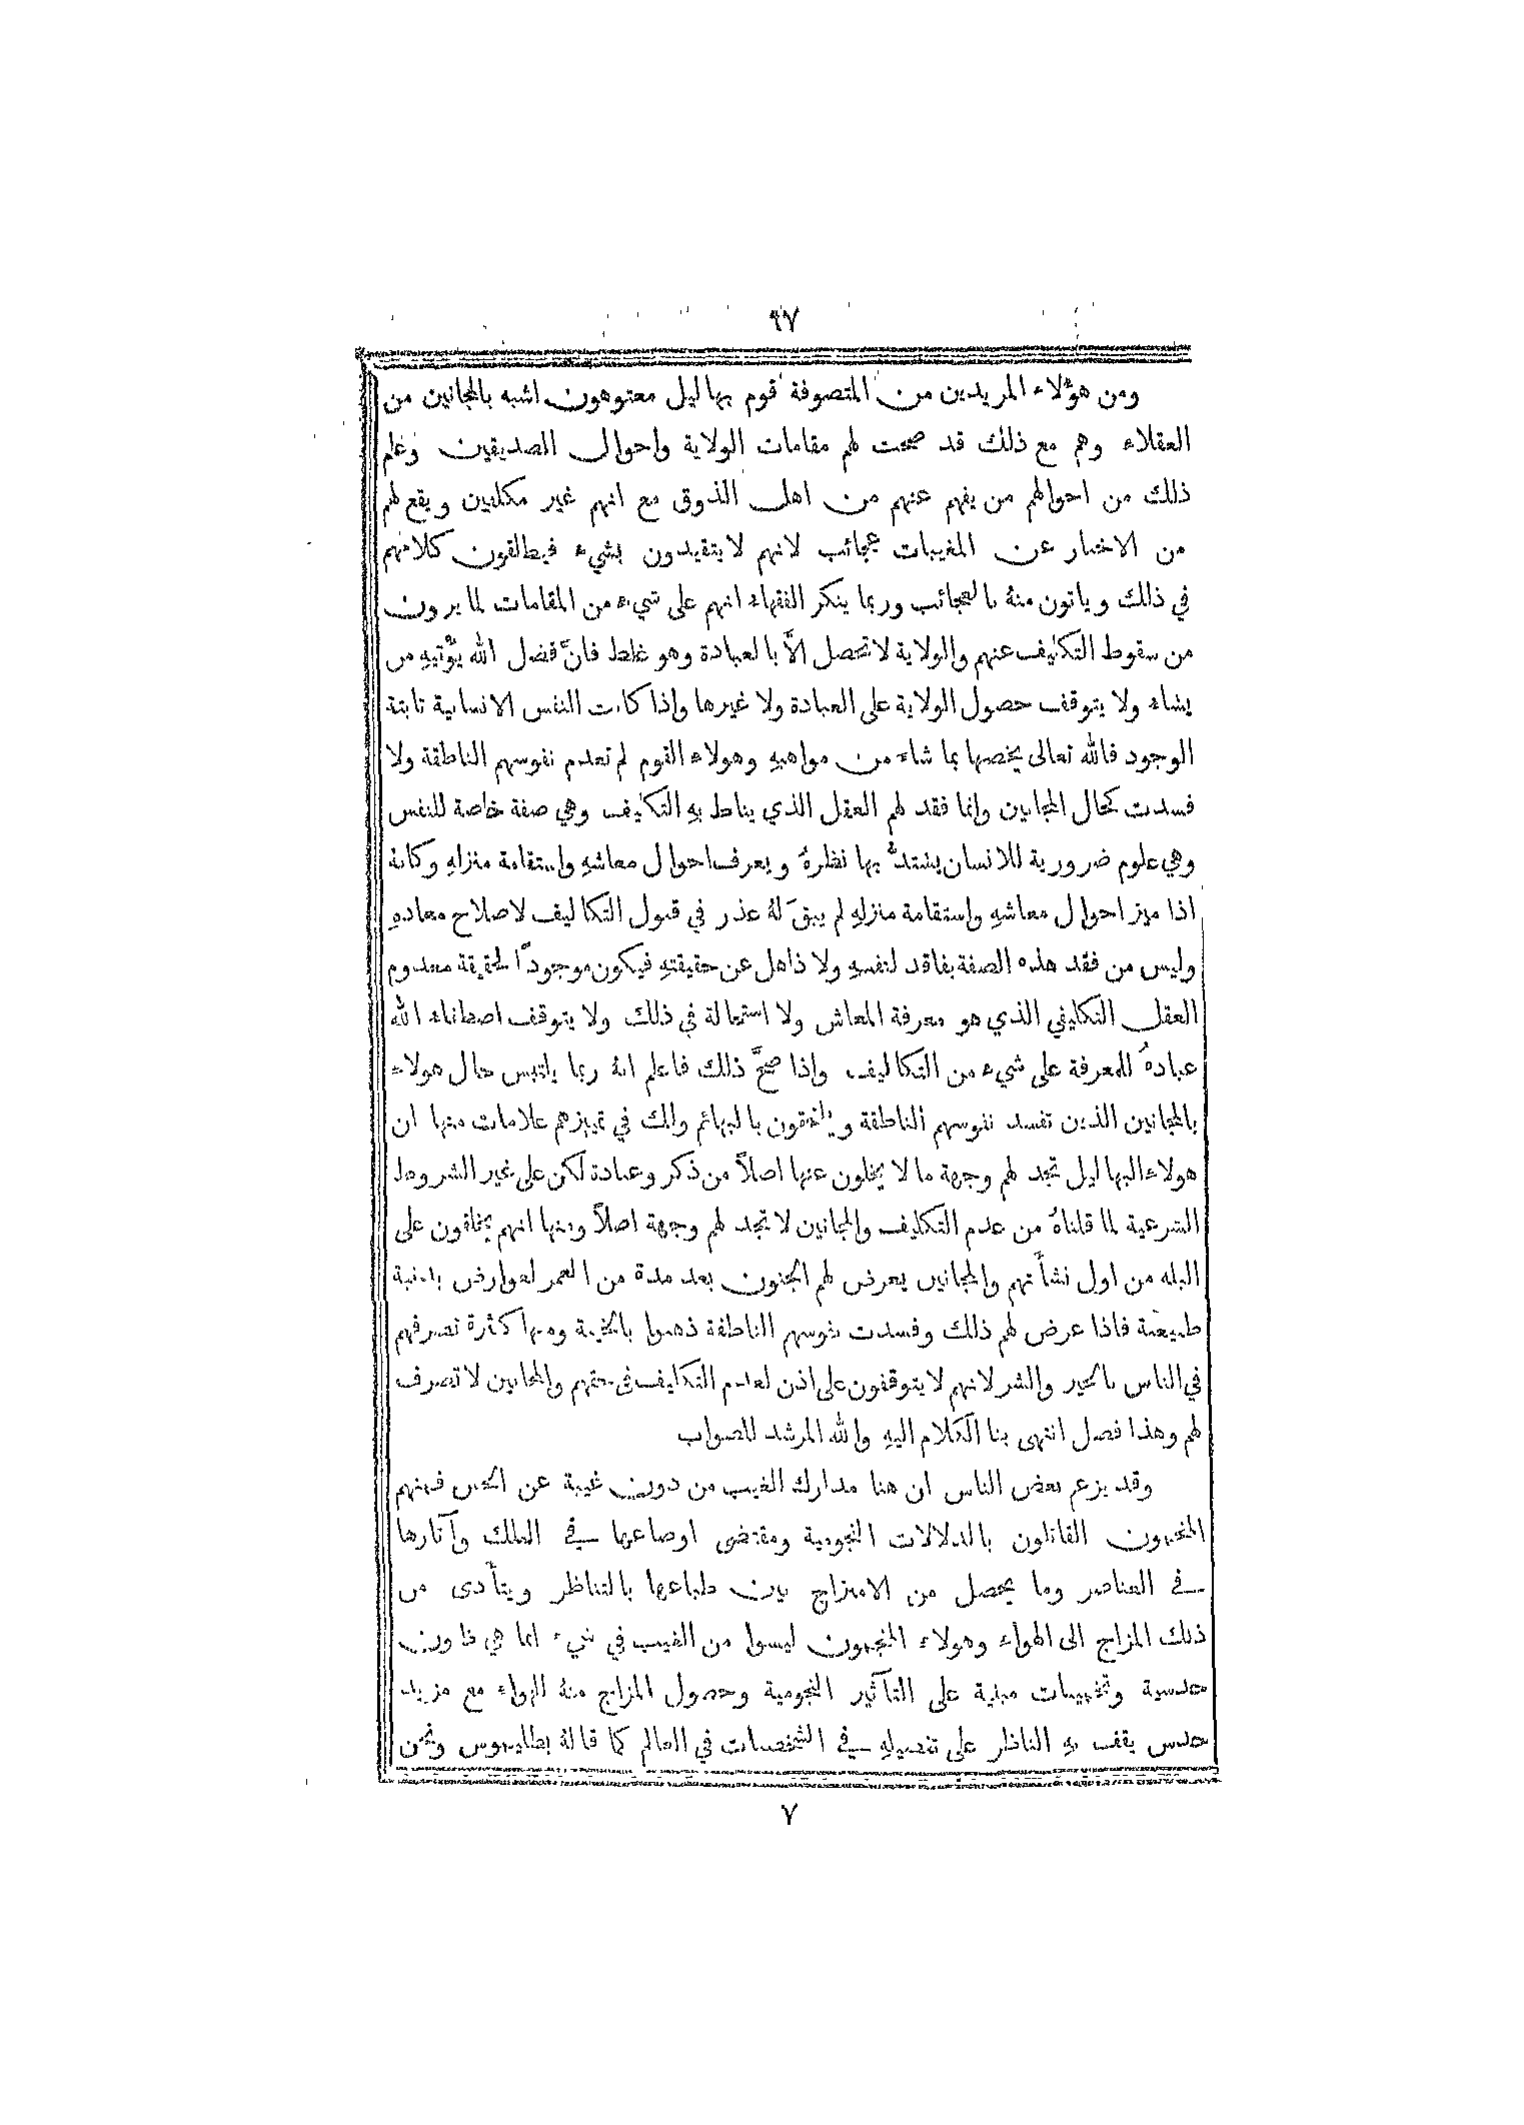 ٩٧
ومن هؤلاء المريدين من المتصوفة قوم بهاليل معتوهون اشبه بالمجانين من
العقلاء وهم مع ذلك قد صحت لهم مقامات الولاية واحوال الصديقين وعلم
ذلك من احوالهم من يفهم عنهم من اهل الذوق مع انهم غير مكلفين ويقع لهم
من الاخبار عن المغيبات عجائب لانهم لا يتقيدون بشيء فيطلقون كلامهم
في ذلك وياتون منهُ بالعجائب وربما ينكر الفقهاء انهم على شيء من المقامات لما يرون
من سقوط التكليف عنهم والولاية لا تحصل الاَّ بالعبادة وهو غلط فانَّ فضل الله يؤتيهِ من
يشاء ولا يتوقف حصول الولاية على العبادة ولا غيرها واذا كانت النفس الانسانية ثابتة
الوجود فالله تعالى يخصها بما شاء من مواهبهِ وهولاء القوم لم تعدم نفوسهم الناطقة ولا
فسدت كحال المجانين وانما فقد لهم العقل الذي يناط بهِ التكليف وهي صفة خاصة للنفس
وهي علوم ضرورية للانسان يشتدُّ بها نظرهُ ويعرف احوال معاشهِ واستقامة منزلهِ وكانهُ
اذا ميز احوال معاشهِ واستقامة منزلهِ لم يبقَ لهُ عذر في قبول التكاليف لاصلاح معادهِ
وليس من فقد هذه الصفة بفاقد لنفسهِ ولا ذاهل عن حقيقتهِ فيكون موجودًا لحقيقة معدوم
العقل التكليفي الذي هو معرفة المعاش ولا استحالة في ذلك ولا يتوقف اصطفاء الله
عبادهُ للمعرفة على شيء من التكاليف واذا صحَّ ذلك فاعلم انهُ ربما يلتبس حال هولاء
بالمجانين الذين تفسد نفوسهم الناطقة ويلتحقون بالبهائم ولك في تمييزهم علامات منها ان
هولاء البهاليل تجد لهم وجهة ما لا يخلون عنها اصلاً من ذكر وعبادة لكن على غير الشروط
الشرعية لما قلناهُ من عدم التكليف والمجانين لا تجد لهم وجهة اصلاً ومنها انهم يخلقون على
البله من اول نشأتهم والمجانين يعرض لهم الجنون بعد مدة من العمر لعوارض بدنية
طبيعية فاذا عرض لهم ذلك وفسدت نفوسهم الناطقة ذهبوا بالخيبة ومنها كثرة تصرفهم
في الناس بالخير والشر لانهم لا يتوقفون على اذن لعدم التكليف في حقهم والمجانين لا تصرف
لهم وهذا فصل انتهى بنا الكلام اليهِ والله المرشد للصواب
وقد يزعم بعض الناس ان هنا مدارك الغيب من دون غيبة عن الحس فمنهم
المنجمون القائلون بالدلالات النجومية ومقتضى اوضاعها في الفلك وآثارها
في العناصر وما يحصل من الامتزاج بين طباعها بالتناظر ويتأدى من
ذلك المزاج الى الهواء وهولاء المنجمون ليسوا من الغيب في شيء انما هي ظنون
حدسية وتخمينات مبنية على التأثير النجومية وحصول المزاج منهُ للهواء مع مزيد
حدس يقف بهِ الناظر على تفصيلهِ في الشخصيات في العالم كما قالهُ بطليموس ونحن
٧